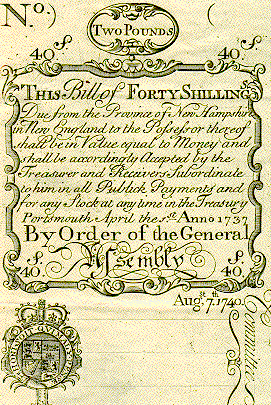 No. ) (
TWO POUNDS
40.s. 40.s.
THIS Bill of FORTY SHILLINGS
Due from the Province of New Hampshire
in New England to the Possessor thereof
shall be in Value equal to Money and
shall be accordingly Accepted by the
Treasurer and Receivers Subordinate
to him in all Publick Payments and
for any Stock at any time in the Treasury
Portsmouth April the 1st. Anno 1737
By Order of the General
Assembly
s. 40. s. 40.
Augst. 7th. 1740.
HONI SOIT QUI MAL
Committee